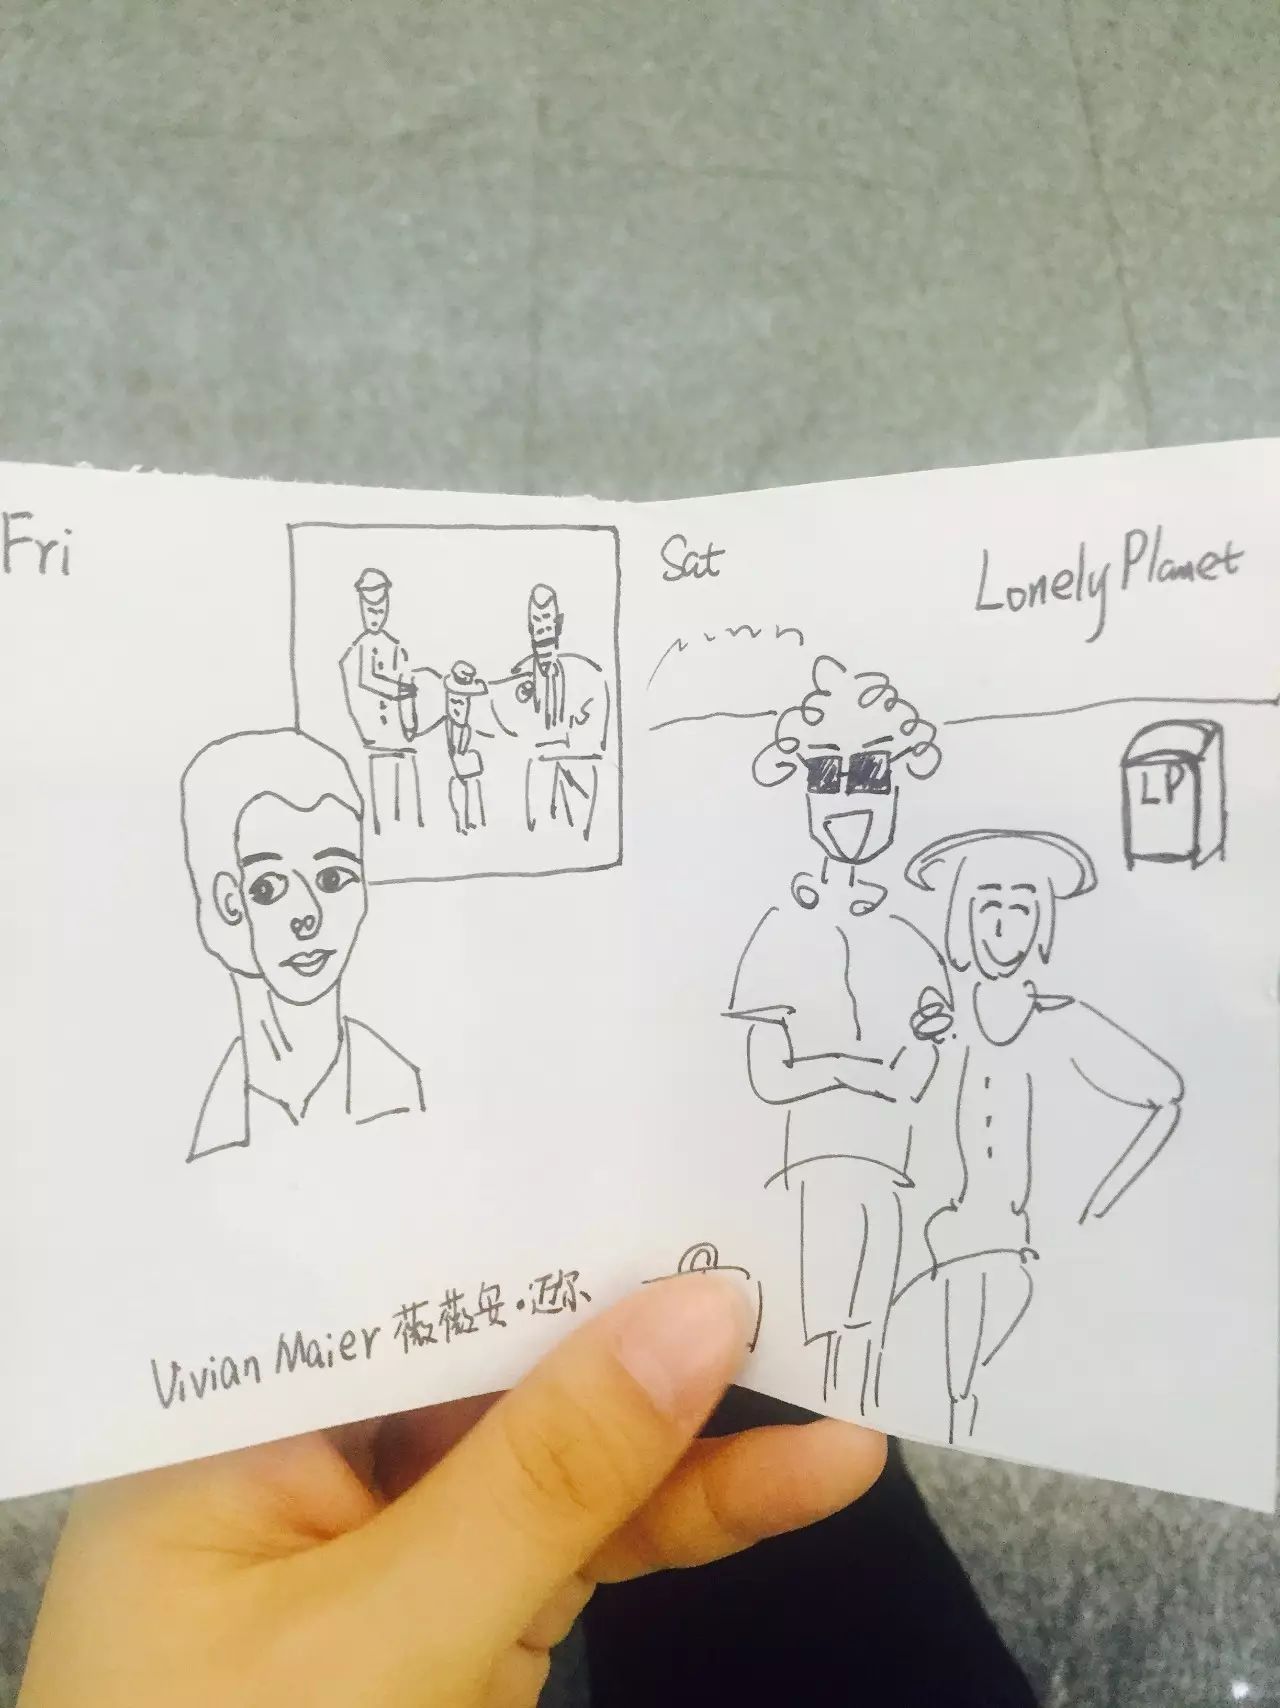 Fri
Vivian Maier 薇薇安·迈尔
Sat
Lonely Planet
LP